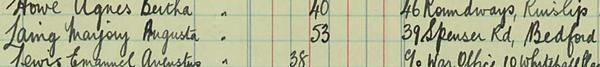 Howe Agnes Bertha " 40 46 Roundways, Ruislip
Laing Marjory Augusta " 53 39 Spenser Rd, Bedford
Lewis Emanuel Augustus " 38 c/o War Office, 10 Whitehall